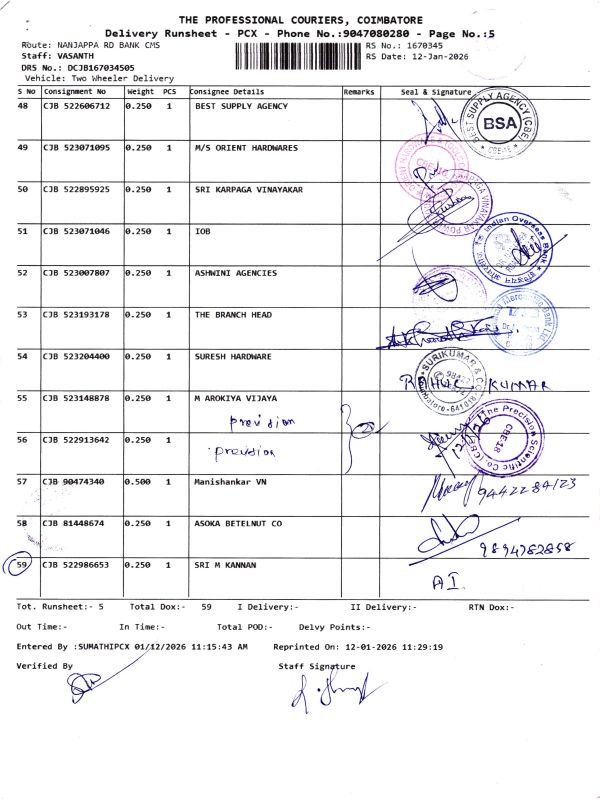 THE PROFESSIONAL COURIERS, COIMBATORE
Delivery Runsheet - PCX - Phone No.:9047080280 - Page No.:5
Route: NANJAPPA RD BANK CMS
RS No.: 1670345
Staff: VASANTH
RS Date: 12-Jan-2026
DRS No.: DCJB167034505
Vehicle: Two Wheeler Delivery
S No Consignment No Weight PCS Consignee Details Remarks Seal & Signature
48 CJB 522606712 0.250 1 BEST SUPPLY AGENCY
BEST SUPPLY AGENCY (CBE) BSA CBE-18
49 CJB 523071095 0.250 1 M/S ORIENT HARDWARES
50 CJB 522895925 0.250 1 SRI KARPAGA VINAYAKAR
51 CJB 523071046 0.250 1 IOB
Indian Overseas Bank
52 CJB 523007807 0.250 1 ASHWINI AGENCIES
53 CJB 523193178 0.250 1 THE BRANCH HEAD
54 CJB 523204400 0.250 1 SURESH HARDWARE
SURIKUMAR & CO
KUMAR
55 CJB 523148878 0.250 1 M AROKIYA VIJAYA
prevision
56 CJB 522913642 0.250 1
prevision
The Precision Scientific Co. (CBE) CBE-18
57 CJB 90474340 0.500 1 Manishankar VN
9442284123
58 CJB 81448674 0.250 1 ASOKA BETELNUT CO
9894782858
59 CJB 522986653 0.250 1 SRI M KANNAN
A I.
Tot. Runsheet:- 5 Total Dox:- 59 I Delivery:- II Delivery:- RTN Dox:-
Out Time:- In Time:- Total POD:- Delvy Points:-
Entered By :SUMATHIPCX 01/12/2026 11:15:43 AM Reprinted On: 12-01-2026 11:29:19
Verified By Staff Signature